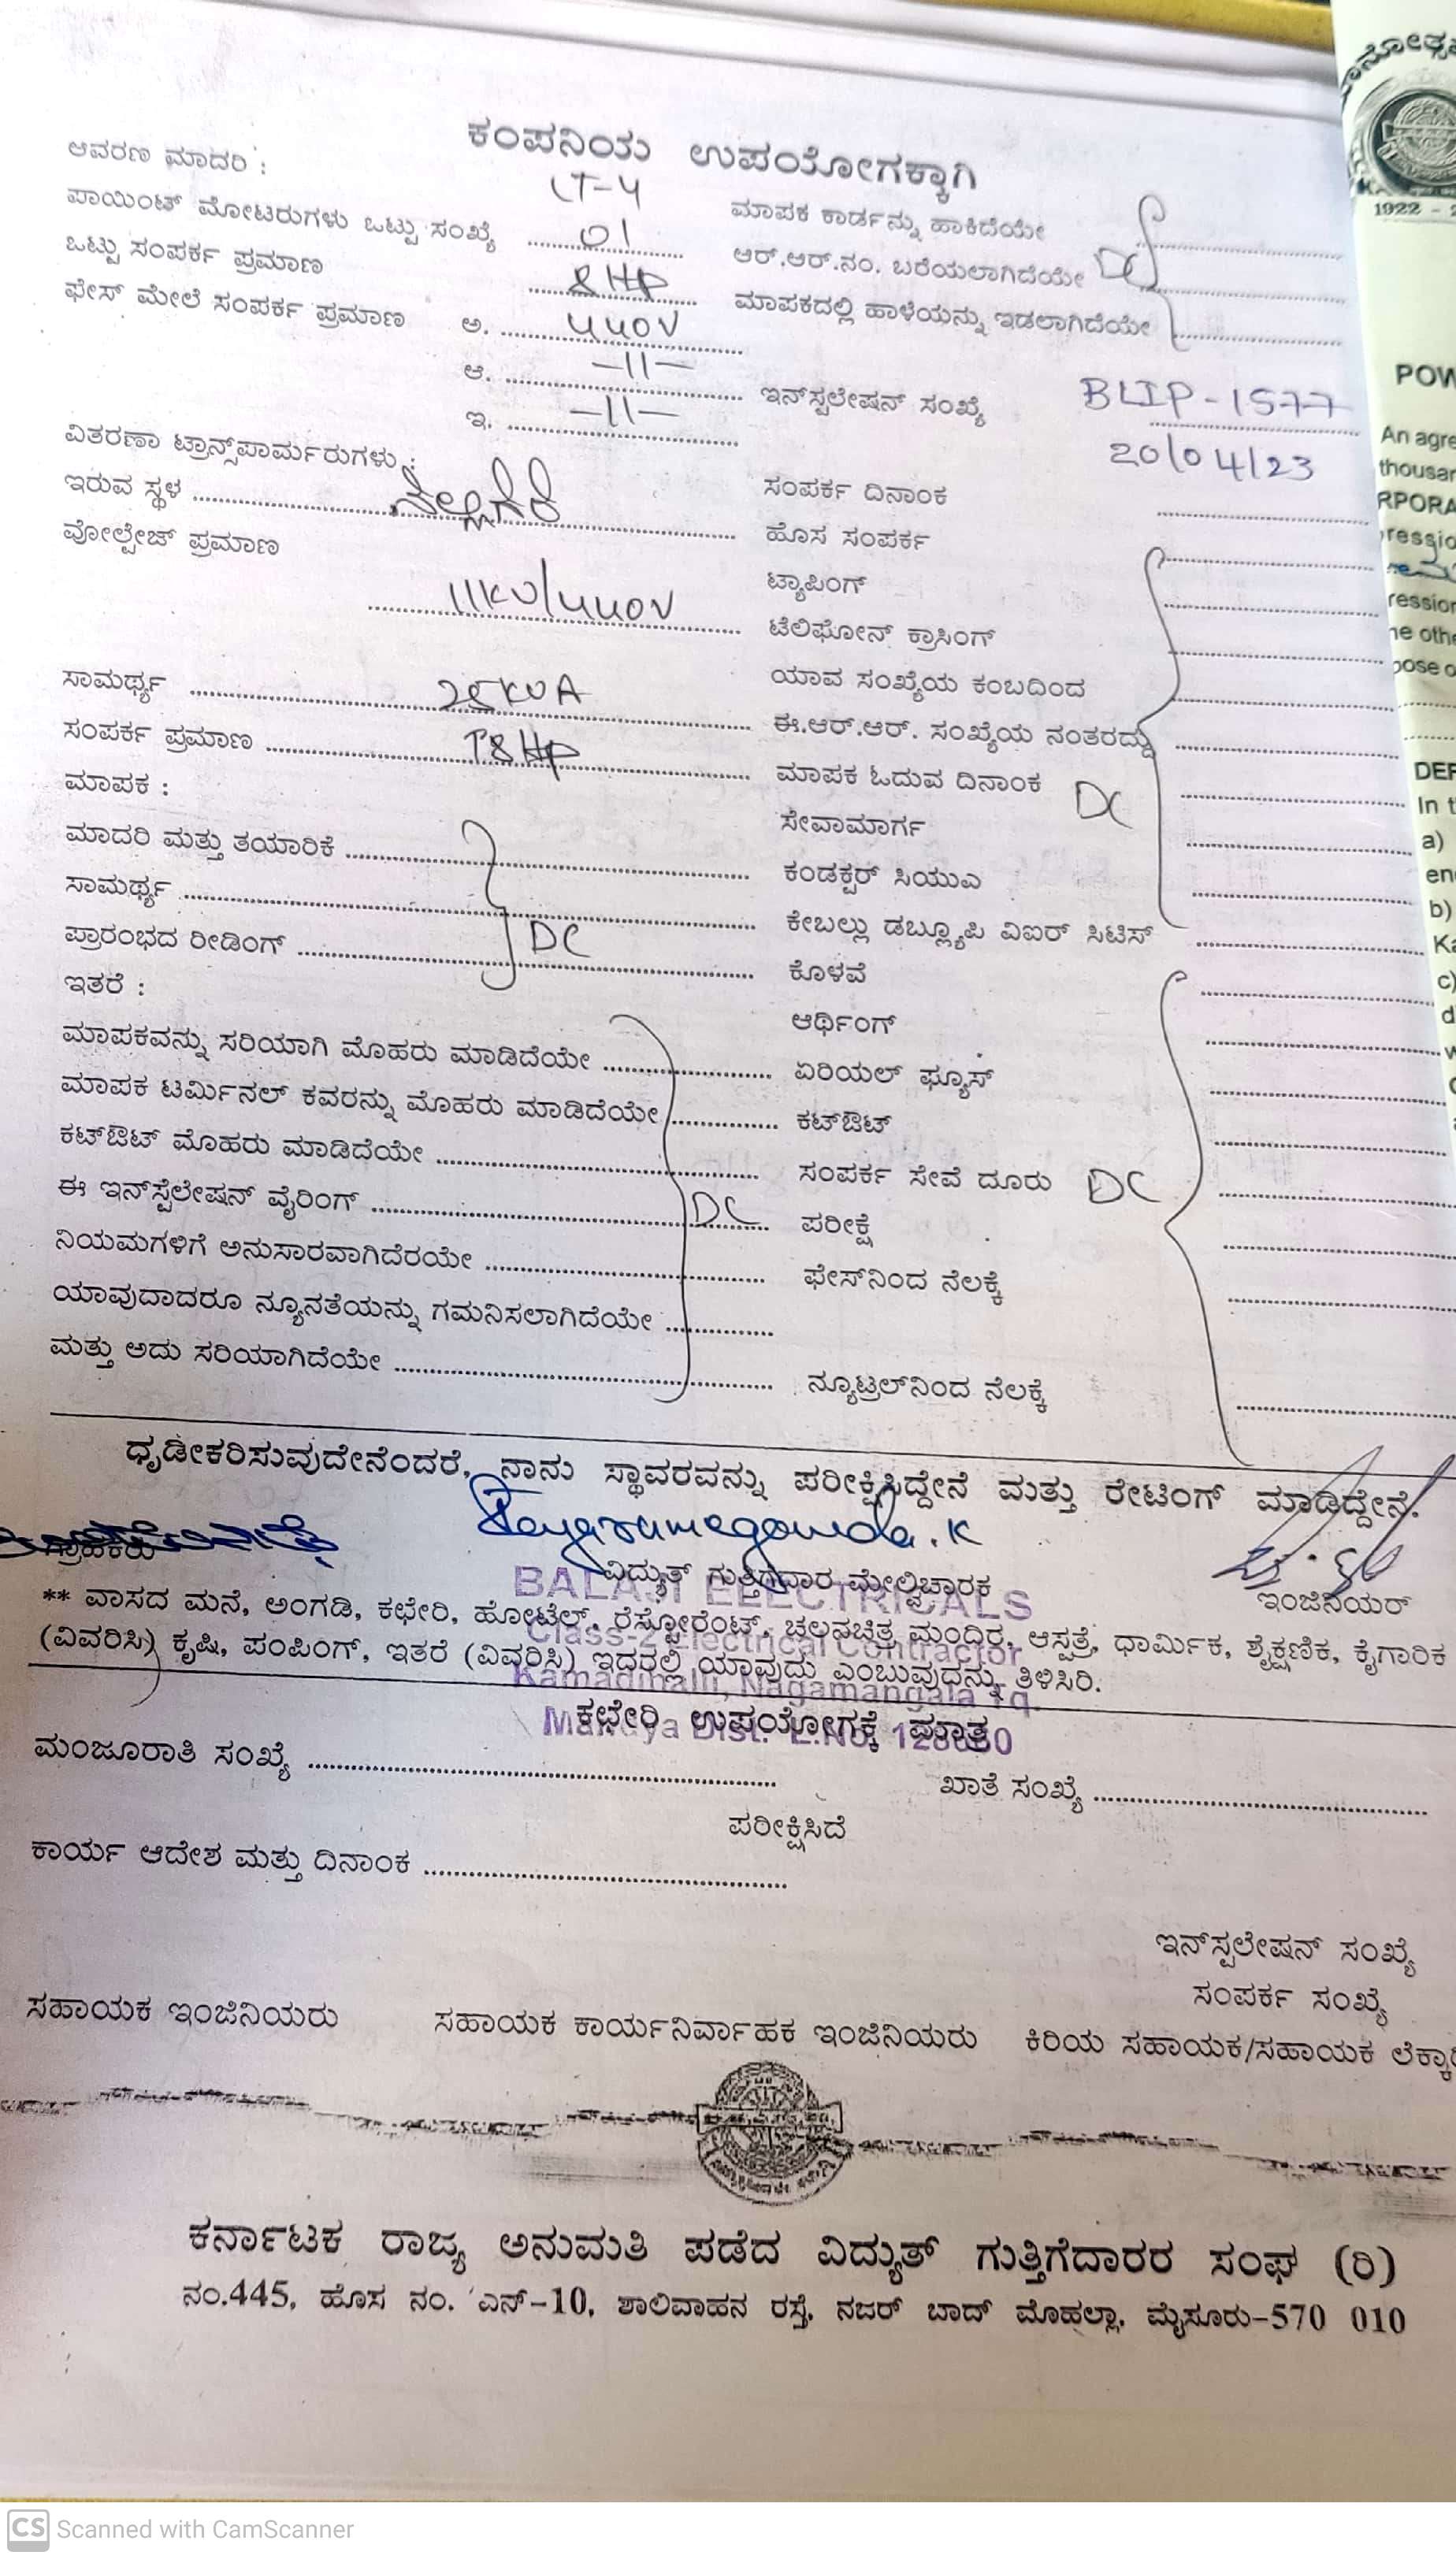 ಕಂಪನಿಯ ಉಪಯೋಗಕ್ಕಾಗಿ
ಆವರಣ ಮಾದರಿ : LT-4
ಪಾಯಿಂಟ್ ಮೋಟರುಗಳು ಒಟ್ಟು ಸಂಖ್ಯೆ 01
ಒಟ್ಟು ಸಂಪರ್ಕ ಪ್ರಮಾಣ 8 HP
ಫೇಸ್ ಮೇಲೆ ಸಂಪರ್ಕ ಪ್ರಮಾಣ ಅ. 440V
ಆ. -11-
ಇ. -11-
ಮಾಪಕ ಕಾರ್ಡನ್ನು ಹಾಕಿದೆಯೇ
ಆರ್.ಆರ್.ನಂ. ಬರೆಯಲಾಗಿದೆಯೇ DC
ಮಾಪಕದಲ್ಲಿ ಹಾಳೆಯನ್ನು ಇಡಲಾಗಿದೆಯೇ
ಇನ್‌ಸ್ಟಲೇಷನ್ ಸಂಖ್ಯೆ BLIP-1577
20/04/23
ವಿತರಣಾ ಟ್ರಾನ್ಸ್‌ಪಾರ್ಮರುಗಳು :
ಇರುವ ಸ್ಥಳ
ವೋಲ್ಟೇಜ್ ಪ್ರಮಾಣ
11KV/440V
ಸಾಮರ್ಥ್ಯ 25KVA
ಸಂಪರ್ಕ ಪ್ರಮಾಣ
ಮಾಪಕ :
ಮಾದರಿ ಮತ್ತು ತಯಾರಿಕೆ
ಸಾಮರ್ಥ್ಯ
ಪ್ರಾರಂಭದ ರೀಡಿಂಗ್ DC
ಇತರೆ :
ಮಾಪಕವನ್ನು ಸರಿಯಾಗಿ ಮೊಹರು ಮಾಡಿದೆಯೇ
ಮಾಪಕ ಟರ್ಮಿನಲ್ ಕವರನ್ನು ಮೊಹರು ಮಾಡಿದೆಯೇ
ಕಟ್‌ಔಟ್ ಮೊಹರು ಮಾಡಿದೆಯೇ
ಈ ಇನ್‌ಸ್ಟೆಲೇಷನ್ ವೈರಿಂಗ್ DC
ನಿಯಮಗಳಿಗೆ ಅನುಸಾರವಾಗಿದೆರಯೇ
ಯಾವುದಾದರೂ ನ್ಯೂನತೆಯನ್ನು ಗಮನಿಸಲಾಗಿದೆಯೇ
ಮತ್ತು ಅದು ಸರಿಯಾಗಿದೆಯೇ
ಸಂಪರ್ಕ ದಿನಾಂಕ
ಹೊಸ ಸಂಪರ್ಕ
ಟ್ಯಾಪಿಂಗ್
ಟೆಲಿಫೋನ್ ಕ್ರಾಸಿಂಗ್
ಯಾವ ಸಂಖ್ಯೆಯ ಕಂಬದಿಂದ
ಈ.ಆರ್.ಆರ್. ಸಂಖ್ಯೆಯ ನಂತರದ್ದು
ಮಾಪಕ ಓದುವ ದಿನಾಂಕ DC
ಸೇವಾಮಾರ್ಗ
ಕಂಡಕ್ಟರ್ ಸಿಯುಎ
ಕೇಬಲ್ಲು ಡಬ್ಲ್ಯೂಪಿ ವಿಐರ್ ಸಿಟಿಸ್
ಕೊಳವೆ
ಆರ್ಥಿಂಗ್
ಏರಿಯಲ್ ಫ್ಯೂಸ್
ಕಟ್‌ಔಟ್
ಸಂಪರ್ಕ ಸೇವೆ ದೂರು DC
ಪರೀಕ್ಷೆ
ಫೇಸ್‌ನಿಂದ ನೆಲಕ್ಕೆ
ನ್ಯೂಟ್ರಲ್‌ನಿಂದ ನೆಲಕ್ಕೆ
ಧೃಡೀಕರಿಸುವುದೇನೆಂದರೆ, ನಾನು ಸ್ಥಾವರವನ್ನು ಪರೀಕ್ಷಿಸಿದ್ದೇನೆ ಮತ್ತು ರೇಟಿಂಗ್ ಮಾಡಿದ್ದೇನೆ.
ಗ್ರಾಹಕರು
ವಿದ್ಯುತ್ ಗುತ್ತಿಗೆದಾರ ಮೇಲ್ವಿಚಾರಕ
ಇಂಜಿನಿಯರ್
BALAJI ELECTRICALS
Class-2 Electrical Contractor
Nagamangala Tq.
** ವಾಸದ ಮನೆ, ಅಂಗಡಿ, ಕಛೇರಿ, ಹೋಟೆಲ್, ರೆಸ್ಟೋರೆಂಟ್, ಚಲನಚಿತ್ರ ಮಂದಿರ, ಆಸ್ಪತ್ರೆ, ಧಾರ್ಮಿಕ, ಶೈಕ್ಷಣಿಕ, ಕೈಗಾರಿಕ
(ವಿವರಿಸಿ) ಕೃಷಿ, ಪಂಪಿಂಗ್, ಇತರೆ (ವಿವರಿಸಿ) ಇದರಲ್ಲಿ ಯಾವುದು ಎಂಬುವುದನ್ನು ತಿಳಿಸಿರಿ.
ಕಛೇರಿ ಉಪಯೋಗಕ್ಕೆ ಮಾತ್ರ
ಮಂಜೂರಾತಿ ಸಂಖ್ಯೆ
ಖಾತೆ ಸಂಖ್ಯೆ
ಪರೀಕ್ಷಿಸಿದೆ
ಕಾರ್ಯ ಆದೇಶ ಮತ್ತು ದಿನಾಂಕ
ಇನ್‌ಸ್ಟಲೇಷನ್ ಸಂಖ್ಯೆ
ಸಂಪರ್ಕ ಸಂಖ್ಯೆ
ಸಹಾಯಕ ಇಂಜಿನಿಯರು ಸಹಾಯಕ ಕಾರ್ಯನಿರ್ವಾಹಕ ಇಂಜಿನಿಯರು ಕಿರಿಯ ಸಹಾಯಕ/ಸಹಾಯಕ
ಕರ್ನಾಟಕ ರಾಜ್ಯ ಅನುಮತಿ ಪಡೆದ ವಿದ್ಯುತ್ ಗುತ್ತಿಗೆದಾರರ ಸಂಘ (ರಿ)
ನಂ.445, ಹೊಸ ನಂ. ಎನ್-10, ಶಾಲಿವಾಹನ ರಸ್ತೆ, ನಜರ್ ಬಾದ್ ಮೊಹಲ್ಲಾ, ಮೈಸೂರು-570 010
1922 -
An
a)
b)
c)
CS Scanned with CamScanner